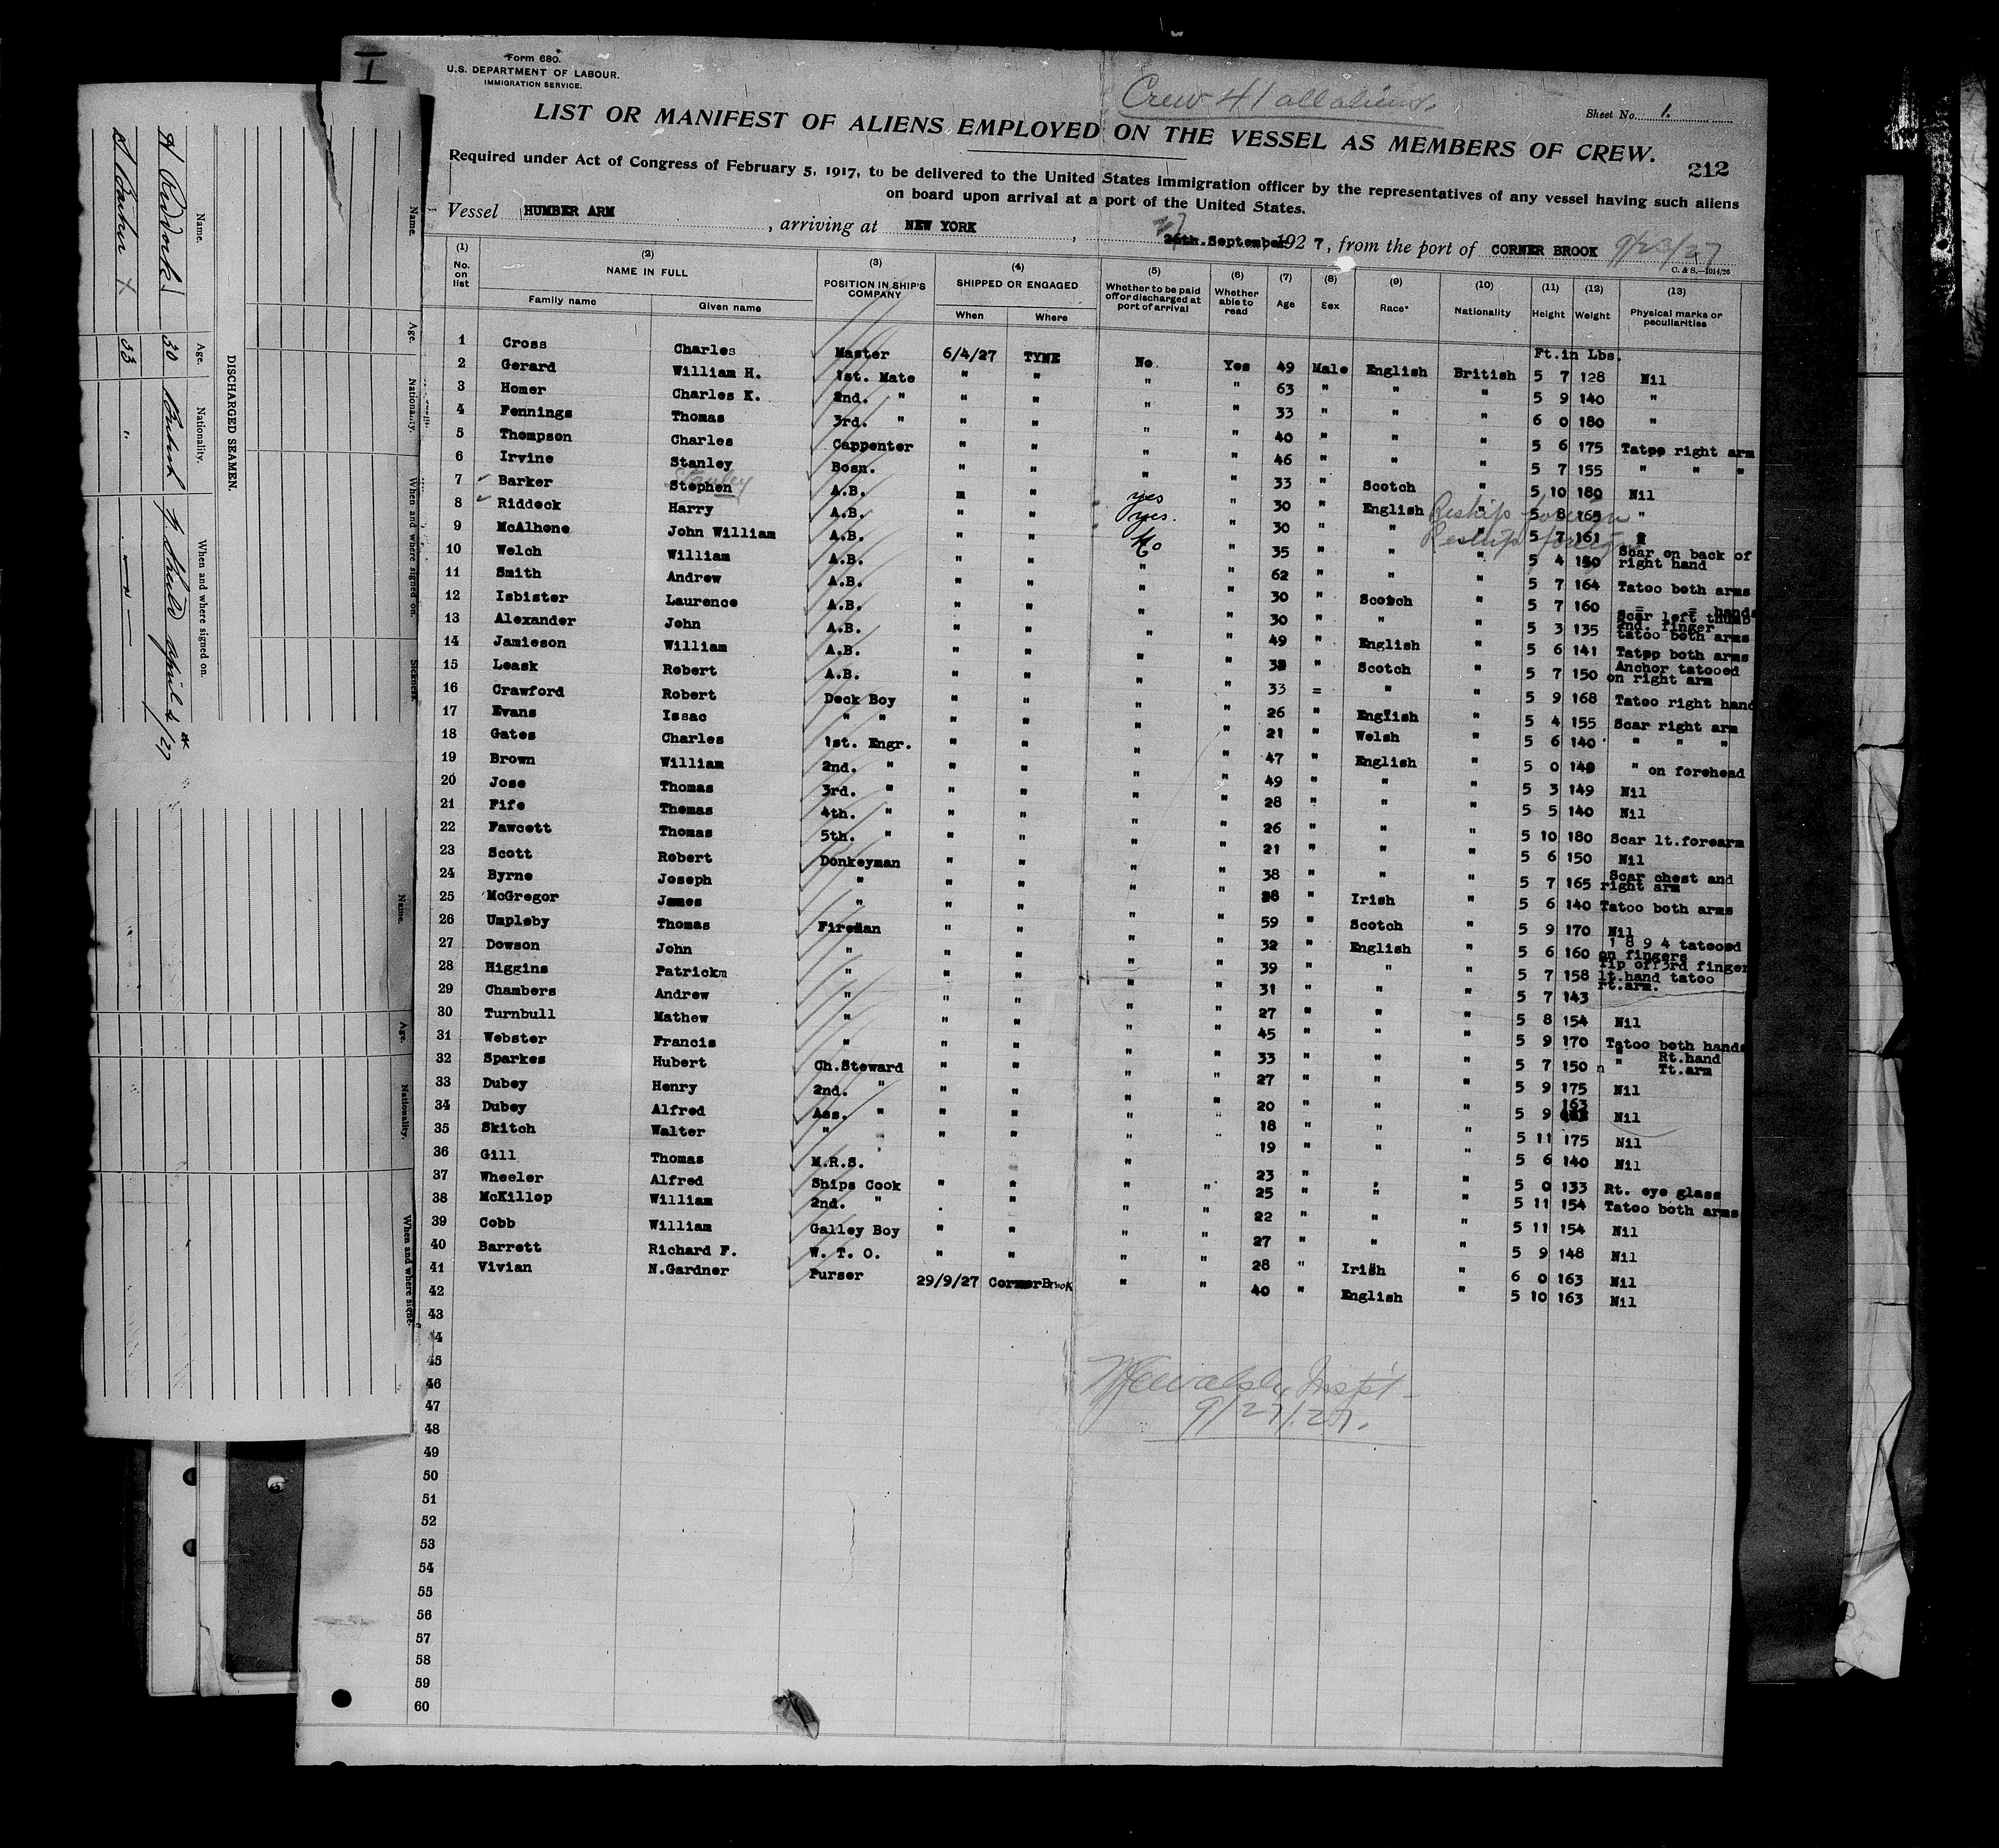 I
Form 680.
U.S. DEPARTMENT OF LABOUR.
IMMIGRATION SERVICE.
Crew 41 all aliens.
Sheet No. 1.
LIST OR MANIFEST OF ALIENS EMPLOYED ON THE VESSEL AS MEMBERS OF CREW.
212
Required under Act of Congress of February 5, 1917, to be delivered to the United States immigration officer by the representatives of any vessel having such aliens
on board upon arrival at a port of the United States.
Vessel HUMBER ARM, arriving at NEW YORK, 26th.September 1927, from the port of CORNER BROOK 9/23/27
27
C. & S.—1014/26
(1) (2) (3) (4) (5) (6) (7) (8) (9) (10) (11) (12) (13)
No. on list NAME IN FULL POSITION IN SHIP'S COMPANY SHIPPED OR ENGAGED Whether to be paid off or discharged at port of arrival Whether able to read Age Sex Race* Nationality Height Weight Physical marks or peculiarities
Family name Given name When Where
Ft.in Lbs.
1 Cross Charles Master 6/4/27 TYNE No. Yes 49 Male English British 5 7 128 Nil
2 Gerard William H. 1st. Mate " " " " 63 " " " 5 9 140 "
3 Homer Charles K. 2nd. " " " " " 33 " " " 6 0 180 "
4 Fennings Thomas 3rd. " " " " " 40 " " " 5 6 175 Tatoo right arm
5 Thompson Charles Carpenter " " " " 46 " " " 5 7 155 " " "
6 Irvine Stanley Bosn. " " " " 33 " Scotch " 5 10 180 Nil
7 Barker Stephen Stanley A.B. " " yes " 30 " English " 5 8 165 " Reship foreign
8 Riddeck Harry A.B. " " yes. " 30 " " " 5 7 161 " Reship foreign
9 McAlhone John William A.B. " " No " 35 " " " 5 4 150 Scar on back of right hand
10 Welch William A.B. " " " " 62 " " " 5 7 164 Tatoo both arms
11 Smith Andrew A.B. " " " " 30 " Scotch " 5 7 160 " = hands
12 Isbister Laurence A.B. " " " " 30 " " " 5 3 135 Scar left thumb 2nd. finger tatoo both arms
13 Alexander John A.B. " " " " 49 " English " 5 6 141 Tatoo both arms
14 Jamieson William A.B. " " " " " Scotch " 5 7 150 Anchor tatooed on right arm
15 Leask Robert A.B. " " " " 33 = " " 5 9 168 Tatoo right hand
16 Crawford Robert Deck Boy " " " " 26 " English " 5 4 155 Scar right arm
17 Evans Issac " " " " " " 21 " Welsh " 5 6 140 " " "
18 Gates Charles 1st. Engr. " " " " 47 " English " 5 0 149 " on forehead
19 Brown William 2nd. " " " " " 49 " " " 5 3 149 Nil
20 Jose Thomas 3rd. " " " " " 28 " " " 5 5 140 Nil
21 Fife Thomas 4th. " " " " " 26 " " " 5 10 180 Scar lt.forearm
22 Fawcett Thomas 5th. " " " " " 21 " " " 5 6 150 Nil
23 Scott Robert Donkeyman " " " " 38 " " " 5 7 165 Scar chest and right arm
24 Byrne Joseph " " " " " 28 " Irish " 5 6 140 Tatoo both arms
25 McGregor James " " " " " 59 " Scotch " 5 9 170 Nil
26 Umpleby Thomas Fireman " " " " 32 " English " 5 6 160 1 8 9 4 tatooed on fingers
27 Dowson John " " " " " 39 " " " 5 7 158 Tip off 3rd finger lt.hand tatoo rt.arm.
28 Higgins Patrickm " " " " " 31 " " " 5 7 143
29 Chambers Andrew " " " " " 27 " " " 5 8 154 Nil
30 Turnbull Mathew " " " " " 45 " " " 5 9 170 Tatoo both hands
31 Webster Francis " " " " " 33 " " " 5 7 150 " Rt.hand " Tt.arm
32 Sparkes Hubert Ch.Steward " " " " 27 " " " 5 9 175 Nil
33 Dubey Henry 2nd. " " " " " 20 " " " 5 9 163 Nil
34 Dubey Alfred Ass. " " " " " 18 " " " 5 11 175 Nil
35 Skitch Walter " " " " " " 19 " " " 5 6 140 Nil
36 Gill Thomas M.R.S. " 23 " " 5 0 133 Rt. eye glass
37 Wheeler Alfred Ships Cook " " " " 25 " " " 5 11 154 Tatoo both arms
38 McKillop William 2nd. " " " " " 22 " " " 5 11 154 Nil
39 Cobb William Galley Boy " " " " 27 " " " 5 9 148 Nil
40 Barrett Richard F. W. T. O. " " " " 28 " Irish " 6 0 163 Nil
41 Vivian N.Gardner Purser 29/9/27 CornerBrook " " 40 " English " 5 10 163 Nil
42
43
44
45
46
47
48
49
50
51
52
53
54
55
56
57
58
59
60
Inspt.
9/27/27.
DISCHARGED SEAMEN.
Name. Age. Nationality. When and where signed on.
H Riddock 30 British N. Shields April 6th/27
S Barker X 33 " — " —
Name. Age. Nationality. When and where signed on. Sickness.
Name. Age. Nationality. When and where signe